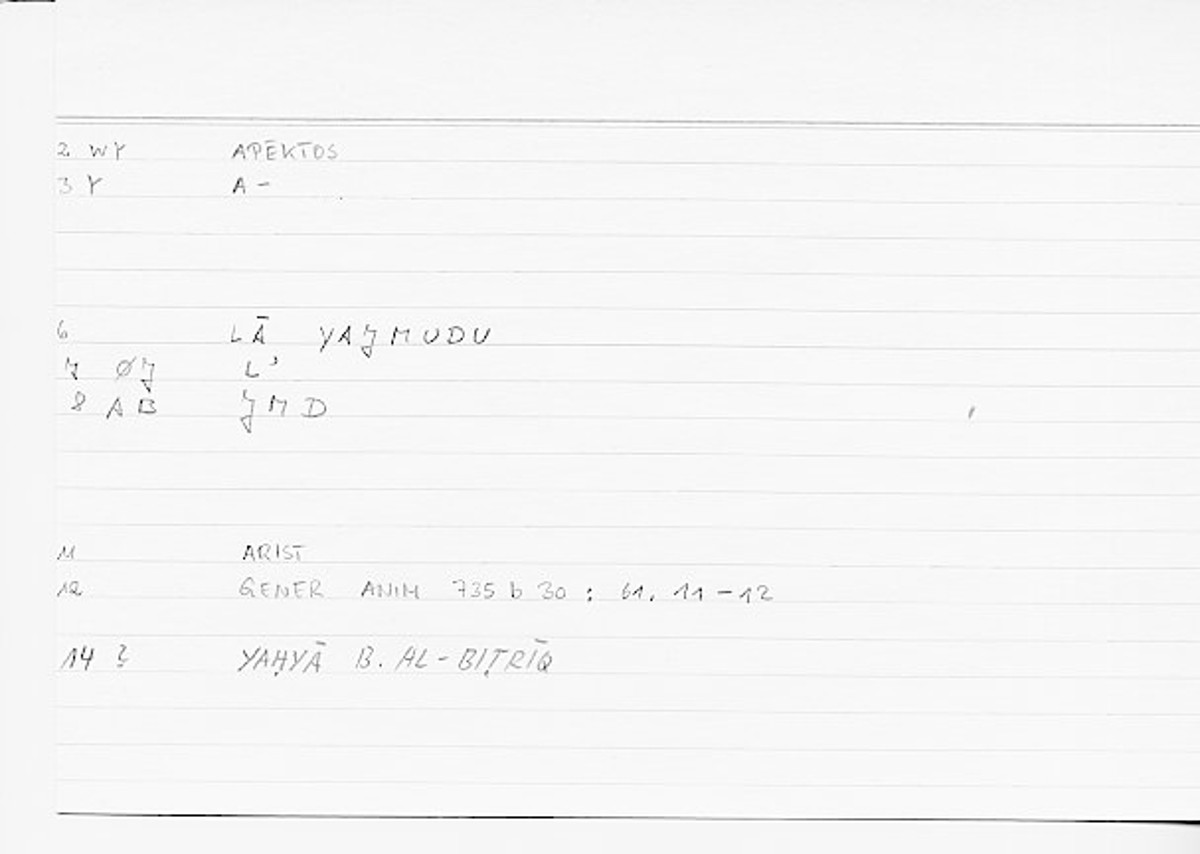 2 WY APĒKTOS
3 Y A-
6 LĀ YAJMUDU
7 ØJ L'
8 AB JMD
11 ARIST
12 GENER ANIM 735 b 30 : 61. 11-12
14 YAḤYĀ B. AL-BIṬRĪQ